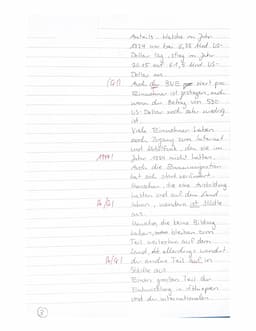 Anteils. Welche im Jahr
1994 um ca. 6,78 Mrd. US-
Dollar lag, stieg im Jahr
2015 auf 61,5 Mrd. US-
Dollar an.
(G1) Auch der BNE pro Wert pro
Einwohner ist gestiegen, auch
wenn der Betrag von 590
US-Dollar noch sehr niedrig
ist.
Viele Einwohner haben
auch Zugang zum Internet
und Mobilfunk, den sie im
1994! Jahr 1994 nicht hatten.
Auch die Binnenmigration
hat sich stark verändert.
Menschen, die eine Ausbildung
hatten und auf dem Land
leben, wandern in Städte
aus.
Menschen, die keine Bildung
haben, bleiben zum
Teil weiterhin auf dem
Land, allerdings wandert
der andere Teil auf in
Städte aus.
Einen großen Teil der
Entwicklung in Äthiopien
sind die internationalen
2